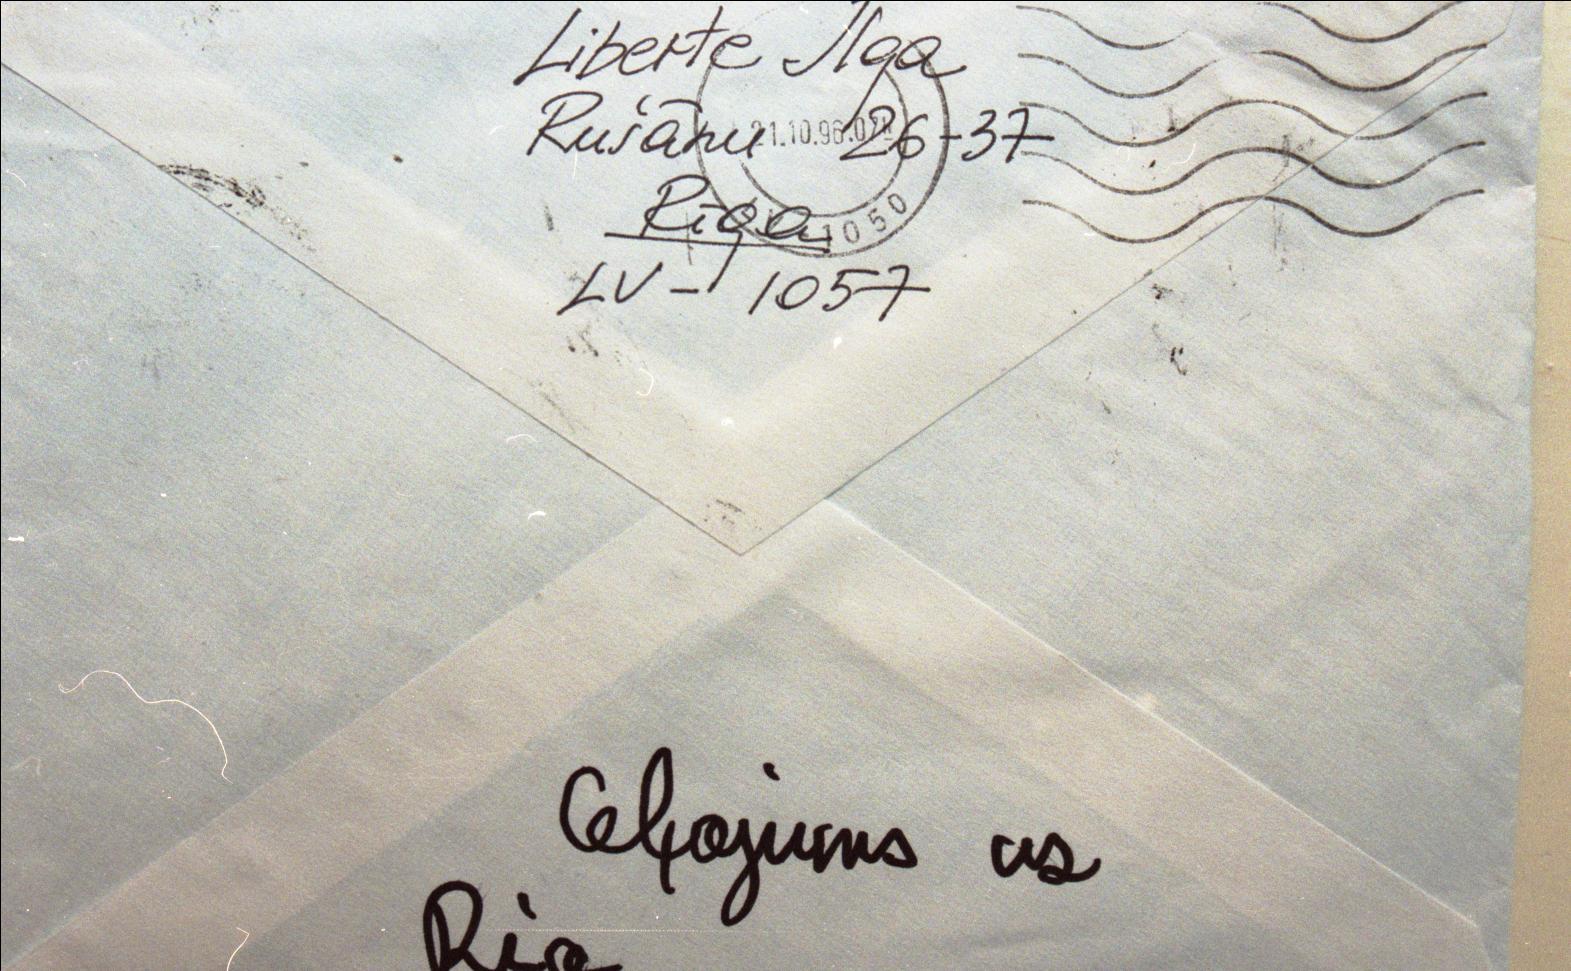 Liberte Ilga
Rušānu 26-37
Rīga
LV- 1057
21.10.96.02
1050
Ceļojums us